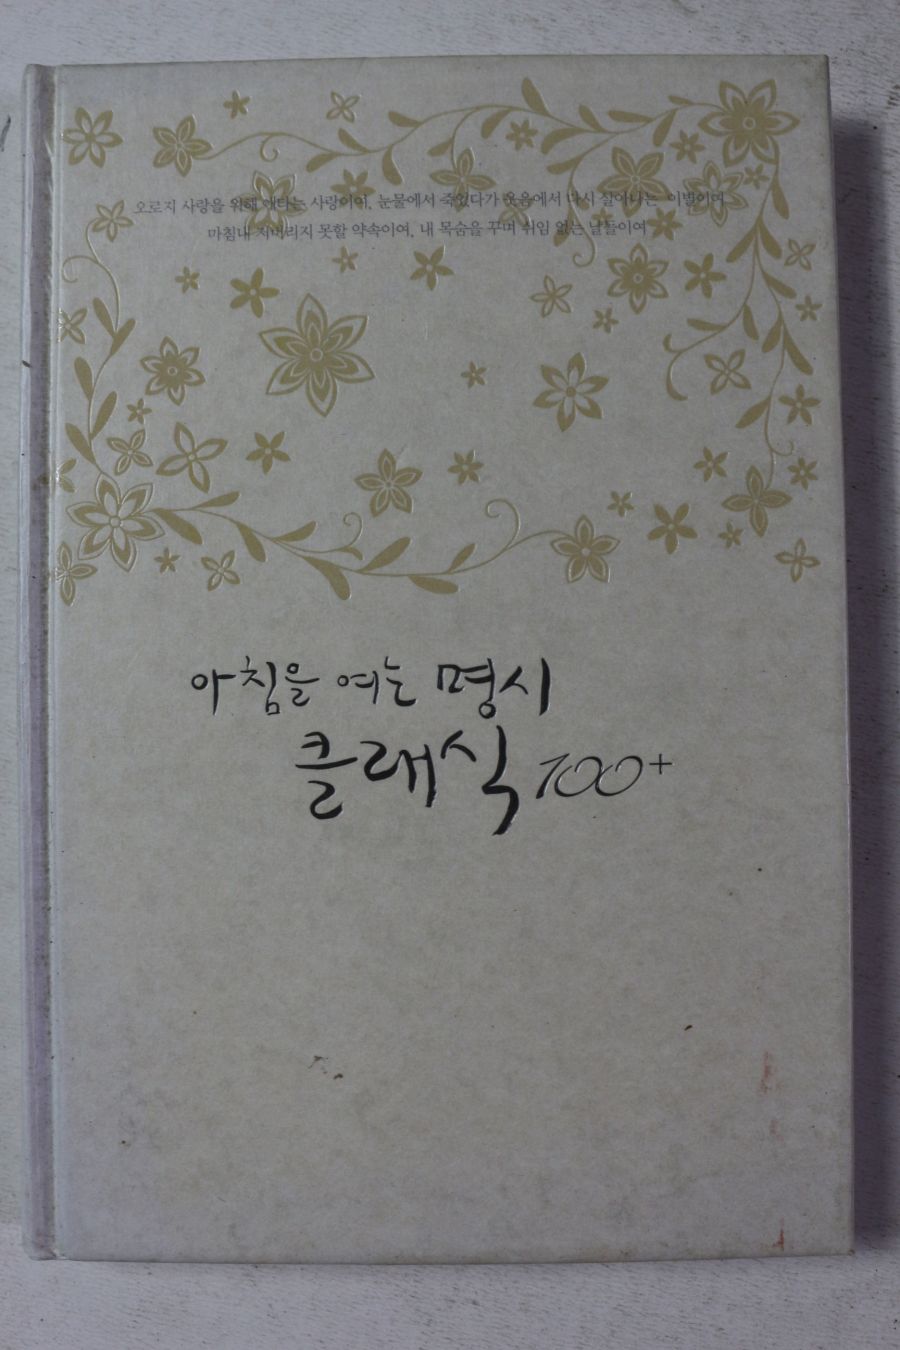 오로지 사랑을 위해 애타는 사랑이여, 눈물에서 죽었다가 웃음에서 다시 살아나는 이별이여
마침내 저버리지 못할 약속이여, 내 목숨을 꾸며 쉬임 없는 날들이여
아침을 여는 명시
클래식 100+